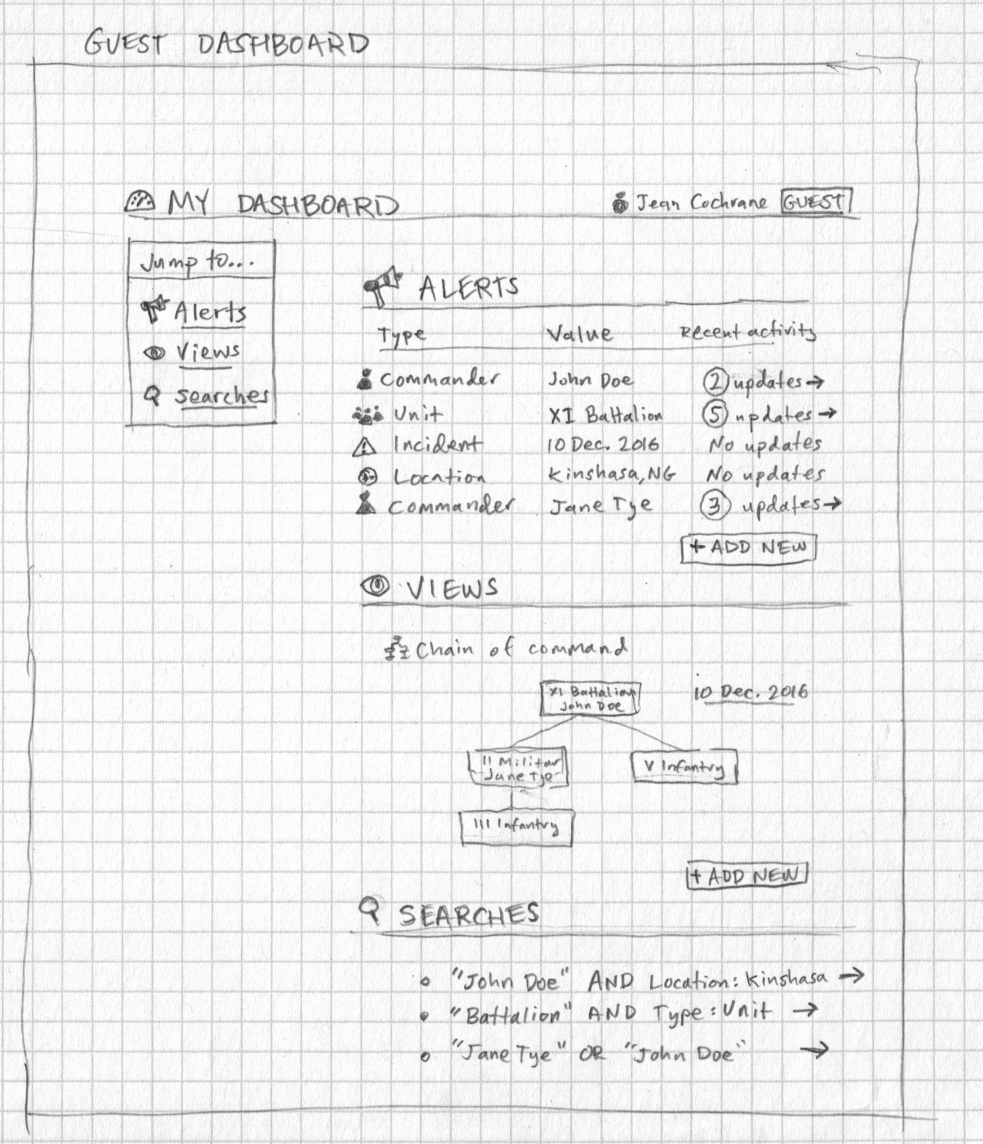 GUEST DASHBOARD
MY DASHBOARD
Jean Cochrane GUEST
Jump to...
Alerts
Views
Searches
ALERTS
Type Value Recent activity
Commander John Doe 2 updates →
Unit XI Battalion 5 updates →
Incident 10 Dec. 2016 No updates
Location Kinshasa, NG No updates
Commander Jane Tye 3 updates →
+ ADD NEW
VIEWS
Chain of command
XI Battalion
John Doe
10 Dec. 2016
II Militar
Jane Tye
V Infantry
III Infantry
+ ADD NEW
SEARCHES
"John Doe" AND Location: Kinshasa →
"Battalion" AND Type: Unit →
"Jane Tye" OR "John Doe" →